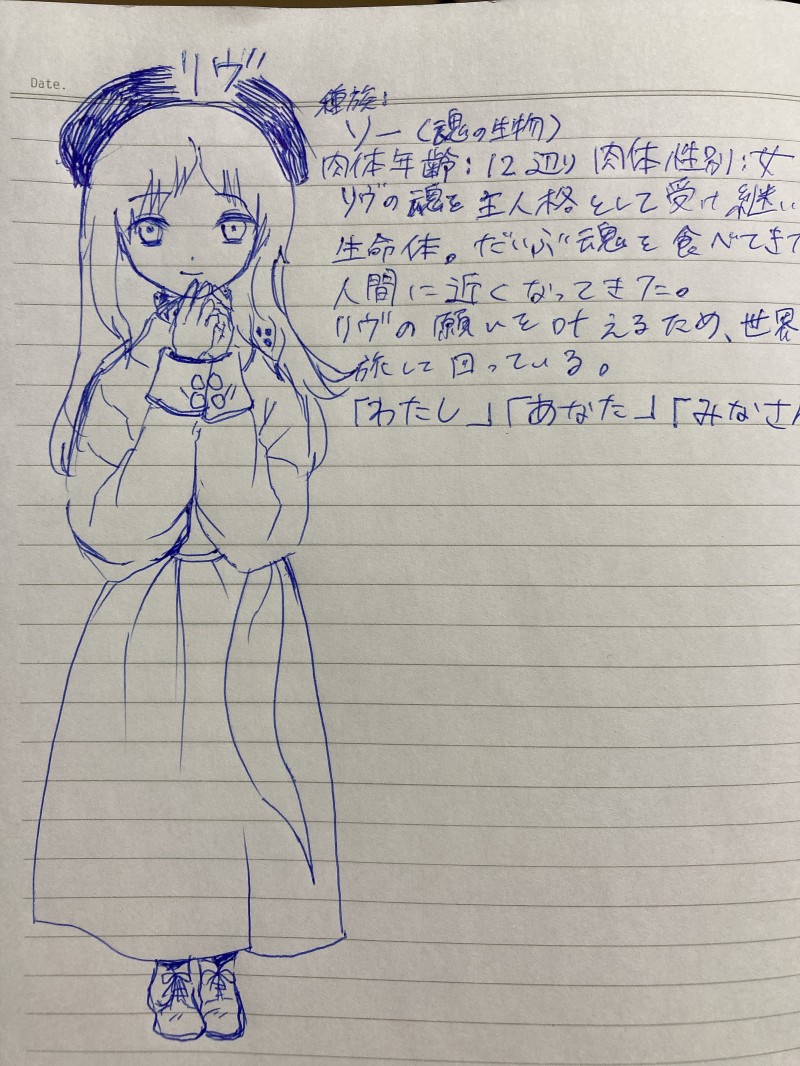 Date.
リヴ
種族:
ソー(魂の生物)
肉体年齢:12辺り 肉体性別:女
リヴの魂を主人格として受け継い
生命体。だいぶ魂を食べてきて
人間に近くなってきた。
リヴの願いを叶えるため、世界
旅して回っている。
「わたし」「あなた」「みなさん